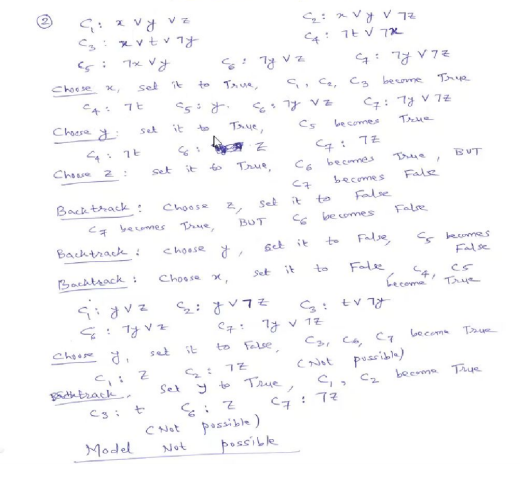 ② C₁: x ∨ y ∨ z C₂: x ∨ y ∨ ¬z
C₃: x ∨ t ∨ ¬y C₄: ¬t ∨ ¬x
C₅: ¬x ∨ y C₆: ¬y ∨ z C₇: ¬y ∨ ¬z
Choose x, set it to True, C₁, C₂, C₃ become True
C₄: ¬t C₅: y. C₆: ¬y ∨ z C₇: ¬y ∨ ¬z
Choose y: set it to True, C₅ becomes True
C₄: ¬t C₆: z C₇: ¬z
Choose z: set it to True, C₆ becomes True, BUT
C₇ becomes False
Backtrack: Choose z, set it to False
C₇ becomes True, BUT C₆ becomes False
Backtrack: Choose y, set it to False, C₅ becomes False
Backtrack: Choose x, set it to False, C₄, C₅ become True
C₁: y ∨ z C₂: y ∨ ¬z C₃: t ∨ ¬y
C₆: ¬y ∨ z C₇: ¬y ∨ ¬z
Choose y, set it to False, C₃, C₆, C₇ become True
C₁: z C₂: ¬z (Not possible)
Backtrack, set y to True, C₁, C₂ become True
C₃: t C₆: z C₇: ¬z
(Not possible)
Model Not possible